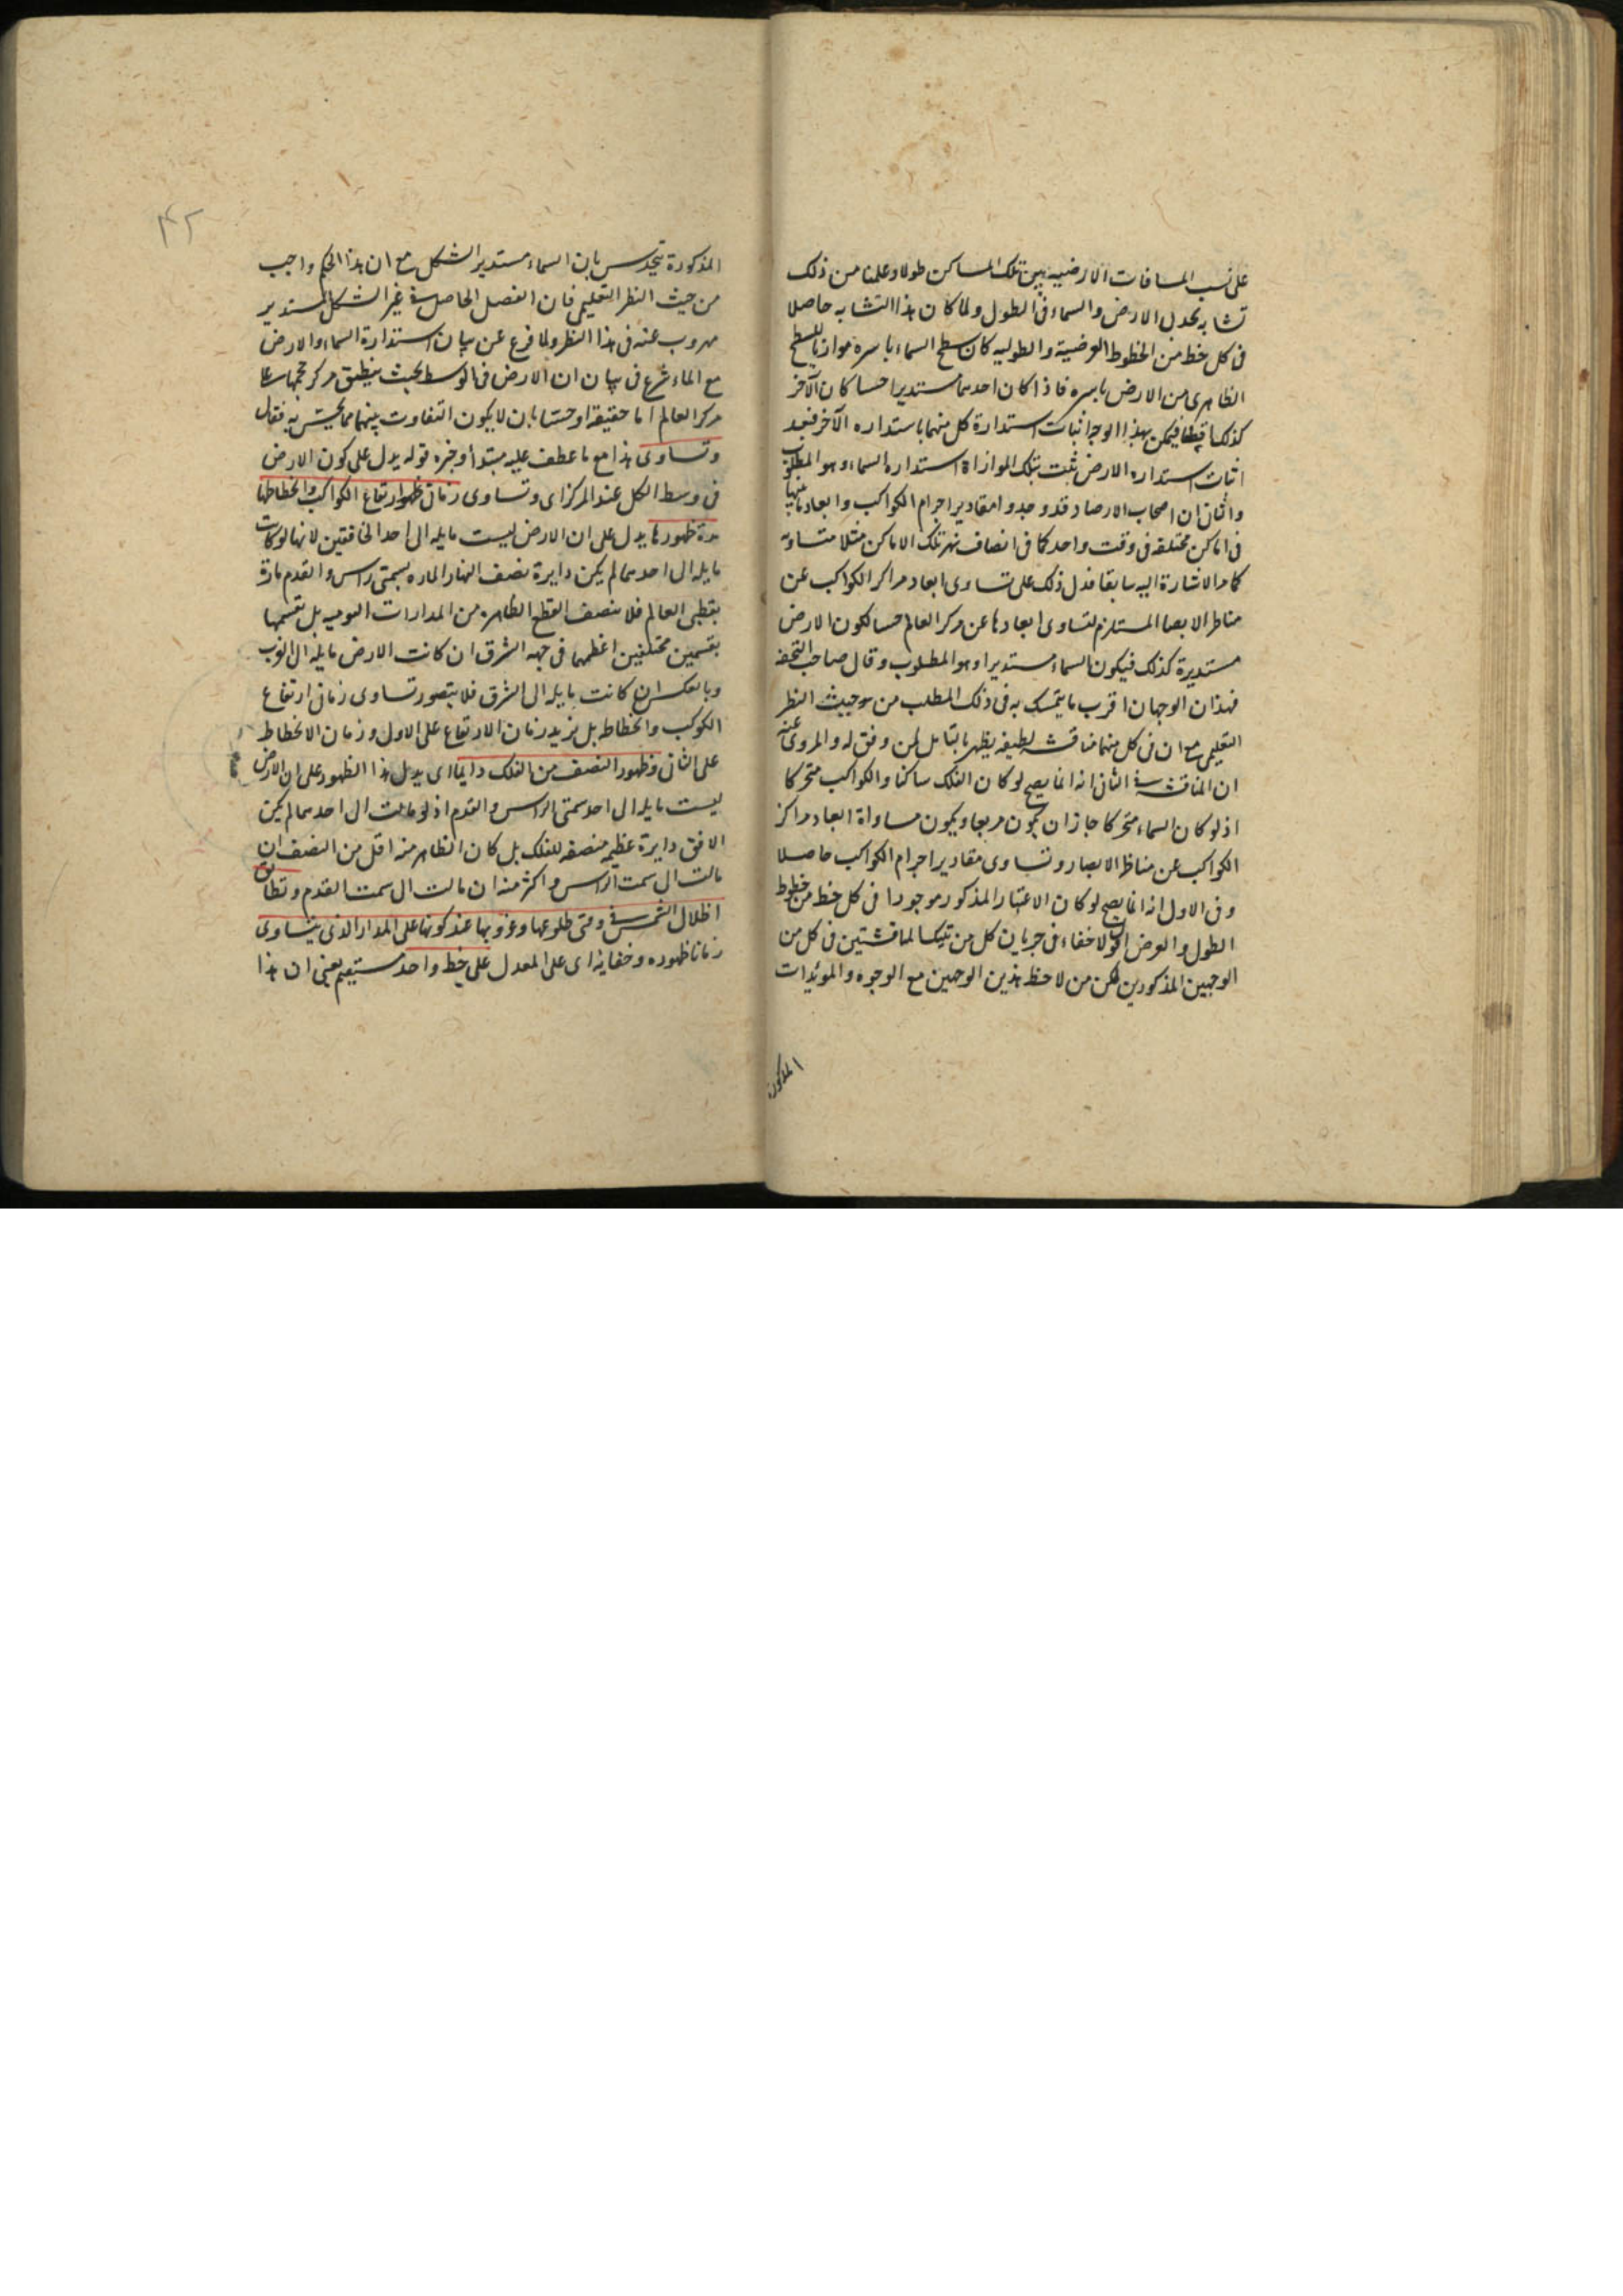 على نسب المسافات الارضيه بين تلك المساكن طولا وعلمنا من ذلك
تشابه تحدب الارض والسماء فى الطول ولما كان هذا التشابه حاصلا
فى كل خط من الخطوط العرضية والطوليه كان سطح السماء باسره موازيا للسطح
الظاهرى من الارض باسره فاذا كان احدهما مستديرا حسا كان الآخر
كذلك قطعا فيمكن بهذا الوجه اثبات استدارة كل منهما باستداره الآخر فبعد
اثبات استداره الارض ثبت بتلك الموازاة استداره السماء وهو المطلوب
والثانى ان اصحاب الارصاد قد وجدوا مقادير اجرام الكواكب وابعاد ما بينها
فى اماكن مختلفه فى وقت واحد كما فى انصاف نهر تلك الاماكن مثلا متساويه
كما مر الاشارة اليه سابقا فدل ذلك على تساوى ابعاد مراكز الكواكب عن
مناظر الابصار المستلزم لتساوى ابعادها عن مركز العالم حسا لكون الارض
مستديرة كذلك فيكون السماء مستديرا وهو المطلوب وقال صاحب التحفه
فهذان الوجهان اقرب ما يتمسك به فى ذلك المطلب من حيث النظر
التعليمى مع ان فى كل منهما مناقشه لطيفه يظهر بالتأمل لمن وفق له والمروى عنه
ان المناقشه فى الثانى انه انما يصح لو كان الفلك ساكنا والكواكب متحركا
اذ لو كان السماء متحركا جاز ان يكون مربعا ويكون مساواة ابعاد مراكز
الكواكب عن مناظر الابصار وتساوى مقادير اجرام الكواكب حاصلا
وفى الاول انه انما يصح لو كان الاعتبار المذكور موجودا فى كل خط من خطوط
الطول والعرض اقول لا خفاء فى جريان كل من تينك المناقشتين فى كل من
الوجهين المذكورين لكن من لاحظ هذين الوجهين مع الوجوه والمويدات
المذكورة
٤٢
المذكورة يتحدس بان السماء مستدير الشكل مع ان هذا الحكم واجب
من حيث النظر التعليمى فان الفصل الحاصل فى غير الشكل المستدير
مهروب عنه فى هذا النظر ولما فرغ عن بيان استدارة السماء والارض
مع الماء شرع فى بيان ان الارض فى الوسط بحيث ينطبق مركز حجمها على
مركز العالم اما حقيقة او حسا بان لا يكون التفاوت بينهما مما يحس به فقال
وتساوى هذا مع ما عطف عليه مبتدأ وخبره قوله يدل على كون الارض
فى وسط الكل عند المركز اى وتساوى زمانى ظهور ارتفاع الكواكب وانحطاطها
مدة ظهورها يدل على ان الارض ليست مايله الى احد الخافقين لانها لو كانت
مايله الى احدهما لم يكن دايرة نصف النهار الماره بسمتى الراس والقدم مارة
بقطبى العالم فلا ينصف القطع الظاهره من المدارات اليوميه بل تقسمها
بقسمين مختلفين اعظمهما فى جهه الشرق ان كانت الارض مايله الى الغرب
وبالعكس ان كانت مايله الى الشرق فلا يتصور تساوى زمانى ارتفاع
الكوكب وانحطاطه بل يزيد زمان الارتفاع على الاول وزمان الانحطاط
على الثانى وظهور النصف من الفلك دايما اى يدل هذا الظهور على ان الارض
ليست مايله الى احد سمتى الراس والقدم اذ لو مالت الى احدهما لم يكن
الافق دايرة عظيمه منصفه للفلك بل كان الظاهر منه اقل من النصف ان
مالت الى سمت الراس واكثر منه ان مالت الى سمت القدم وتطابق
اظلال الشمس فى وقتى طلوعها وغروبها عند كونها على المدار الذى يتساوى
زمانا ظهوره وخفائه اى على المعدل على خط واحد مستقيم يعنى ان هذا